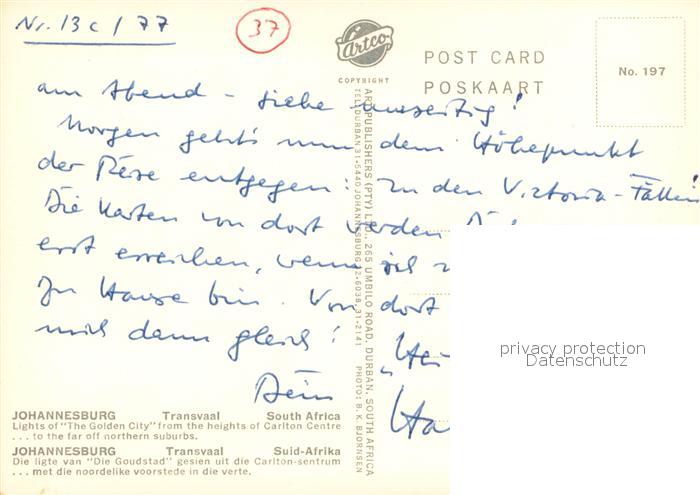 Nr. 13 c / 77
37
Artco
COPYRIGHT
POST CARD
POSKAART
No. 197
am Abend - siehe umseitig!
Morgen geht's nun dem Höhepunkt
der Reise entgegen: zu den Victoria-Fällen!
Die Karten von dort werden
erst erreichen, wenn ich
zu Hause bin. Von dort
mich dann gleich!
Dein
ART PUBLISHERS (PTY) LTD., 265 UMBILO ROAD, DURBAN, SOUTH AFRICA
TEL. DURBAN 31-5440 JOHANNESBURG 22-6038, 31-2141 PHOTO: B. K. BJORNSEN
privacy protection
Datenschutz
JOHANNESBURG Transvaal South Africa
Lights of "The Golden City" from the heights of Carlton Centre
... to the far off northern suburbs.
JOHANNESBURG Transvaal Suid-Afrika
Die ligte van "Die Goudstad" gesien uit die Carlton-sentrum
... met die noordelike voorstede in die verte.